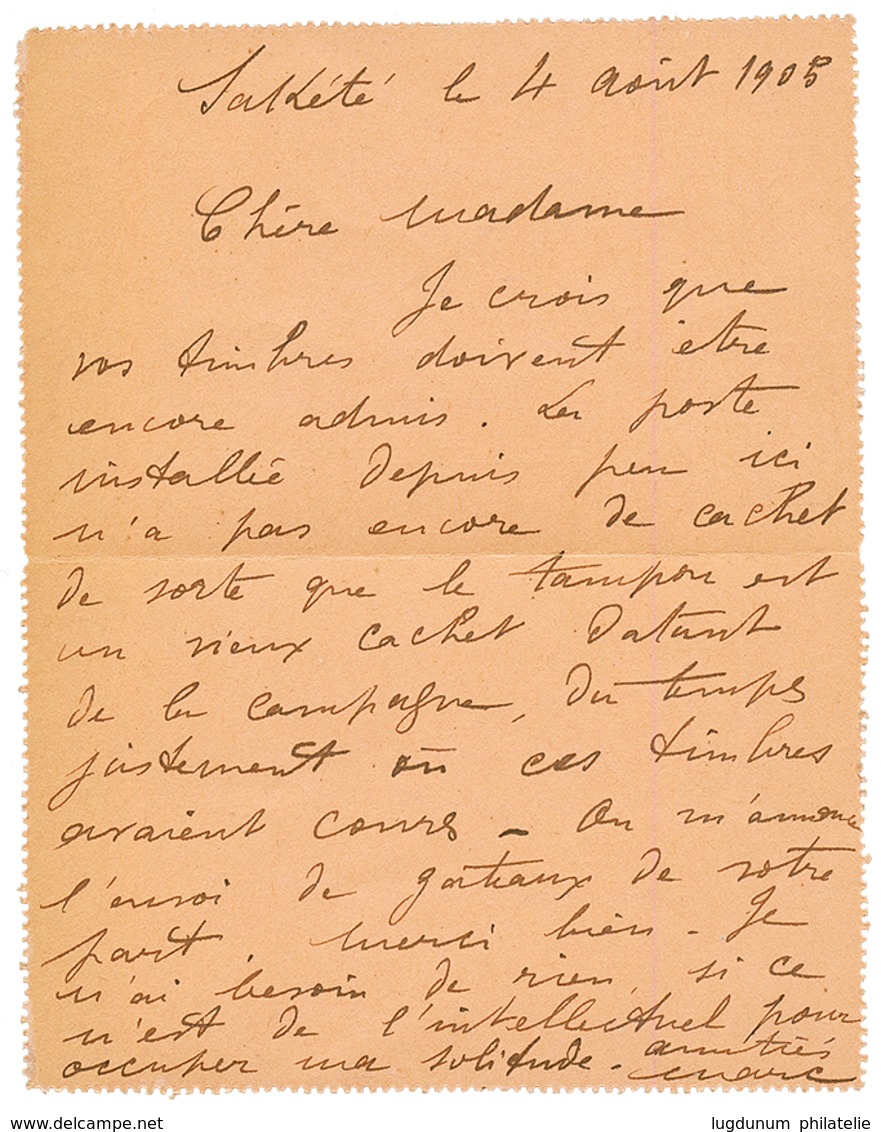 Sakété le 4 août 1905
Chère Madame
Je crois que
vos timbres doivent être
encore admis. La poste
installée depuis peu ici
n'a pas encore de cachet
de sorte que le tampon est
un vieux cachet datant
de la campagne, du temps
justement où ces timbres
avaient cours - On m'annonce
l'envoi de gâteaux de votre
part. Merci bien - Je
n'ai besoin de rien, si ce
n'est de l'intellectuel pour
occuper ma solitude - amitiés
Marc
delcampe.net
lugdunum philatelie